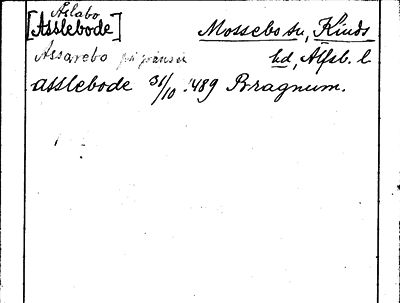 Aslabo
[Asslebode] Mossebo sn, Kinds
Assarebo på gränsen hd, Älfsb. l
asslebode 31/10 1489 Bragnum.